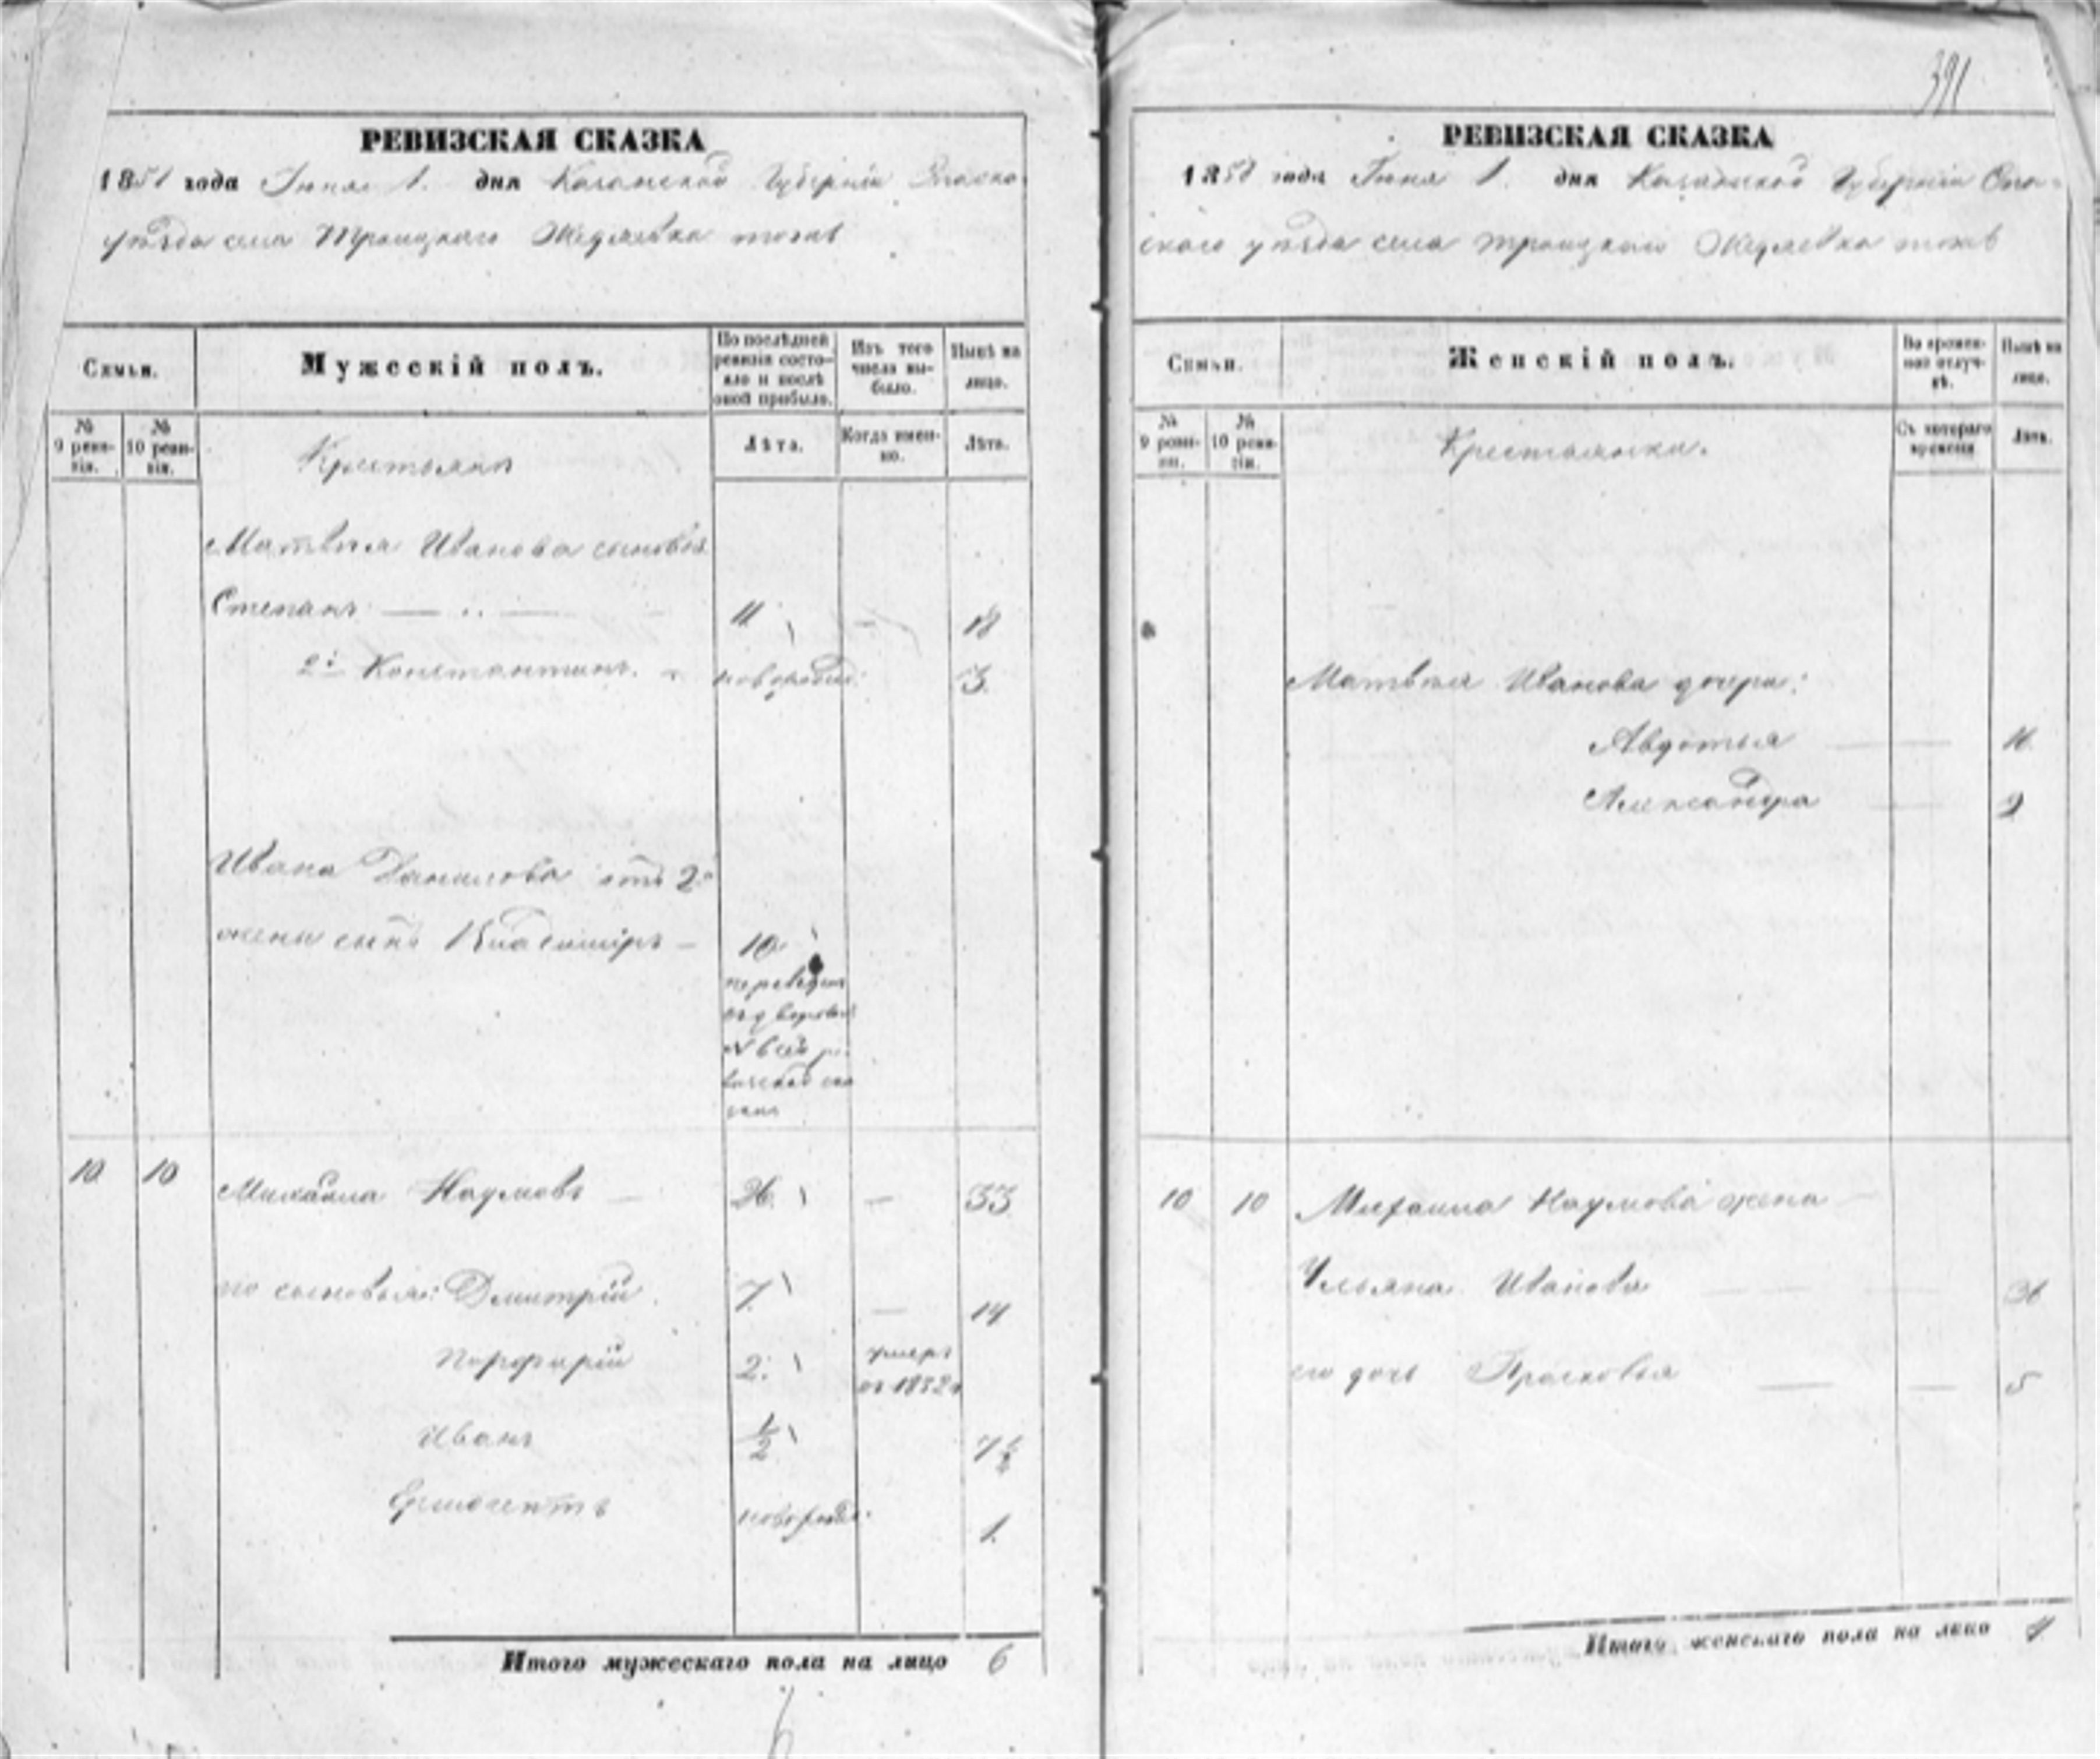 391
РЕВИЗСКАЯ СКАЗКА
185 года Іюня 1. дня Казанской Губерніи Спаска
уѣзда села Троицкаго Жедяевка тожъ
Семьи.
Мужескій полъ.
По послѣдней ревизіи состояло и послѣ оной прибыло.
Изъ того числа выбыло.
Нынѣ на лицо.
№ 9 ревизіи.
№ 10 ревизіи.
Крестьяне
Лѣта.
Когда именно.
Лѣта.
Матвѣя Иванова сыновья
Степанъ 11 18
2й Константинъ. новорожд: 3.
Ивана Данилова отъ 2й
жены сынъ Владиміръ 10
переведенъ
въ дворовые
ска
10 10 Михайла Наумовъ 26. 33
его сыновья: Дмитрій. 7. 14
Порфирій 2. умеръ
въ 1852г
Иванъ 1/2 7 1/2
новорожд: 1.
Итого мужескаго пола на лицо 6
РЕВИЗСКАЯ СКАЗКА
1858 года Іюня 1. дня Казанской Губерніи Спа-
скаго уѣзда села Троицкаго Жедяевка тожъ
Семьи.
Женскій полъ.
Во временной отлучкѣ.
Нынѣ на лицо.
№ 9 ревизіи.
№ 10 ревизіи.
Крестьянки.
Съ котораго времени
Лѣта.
Матвѣя Иванова дочери:
Авдотья 11
Александра 9
10 10 Михаила Наумова жена
Ульяна Иванова 36
его дочь Прасковья 5
Итого женскаго пола на лицо 4